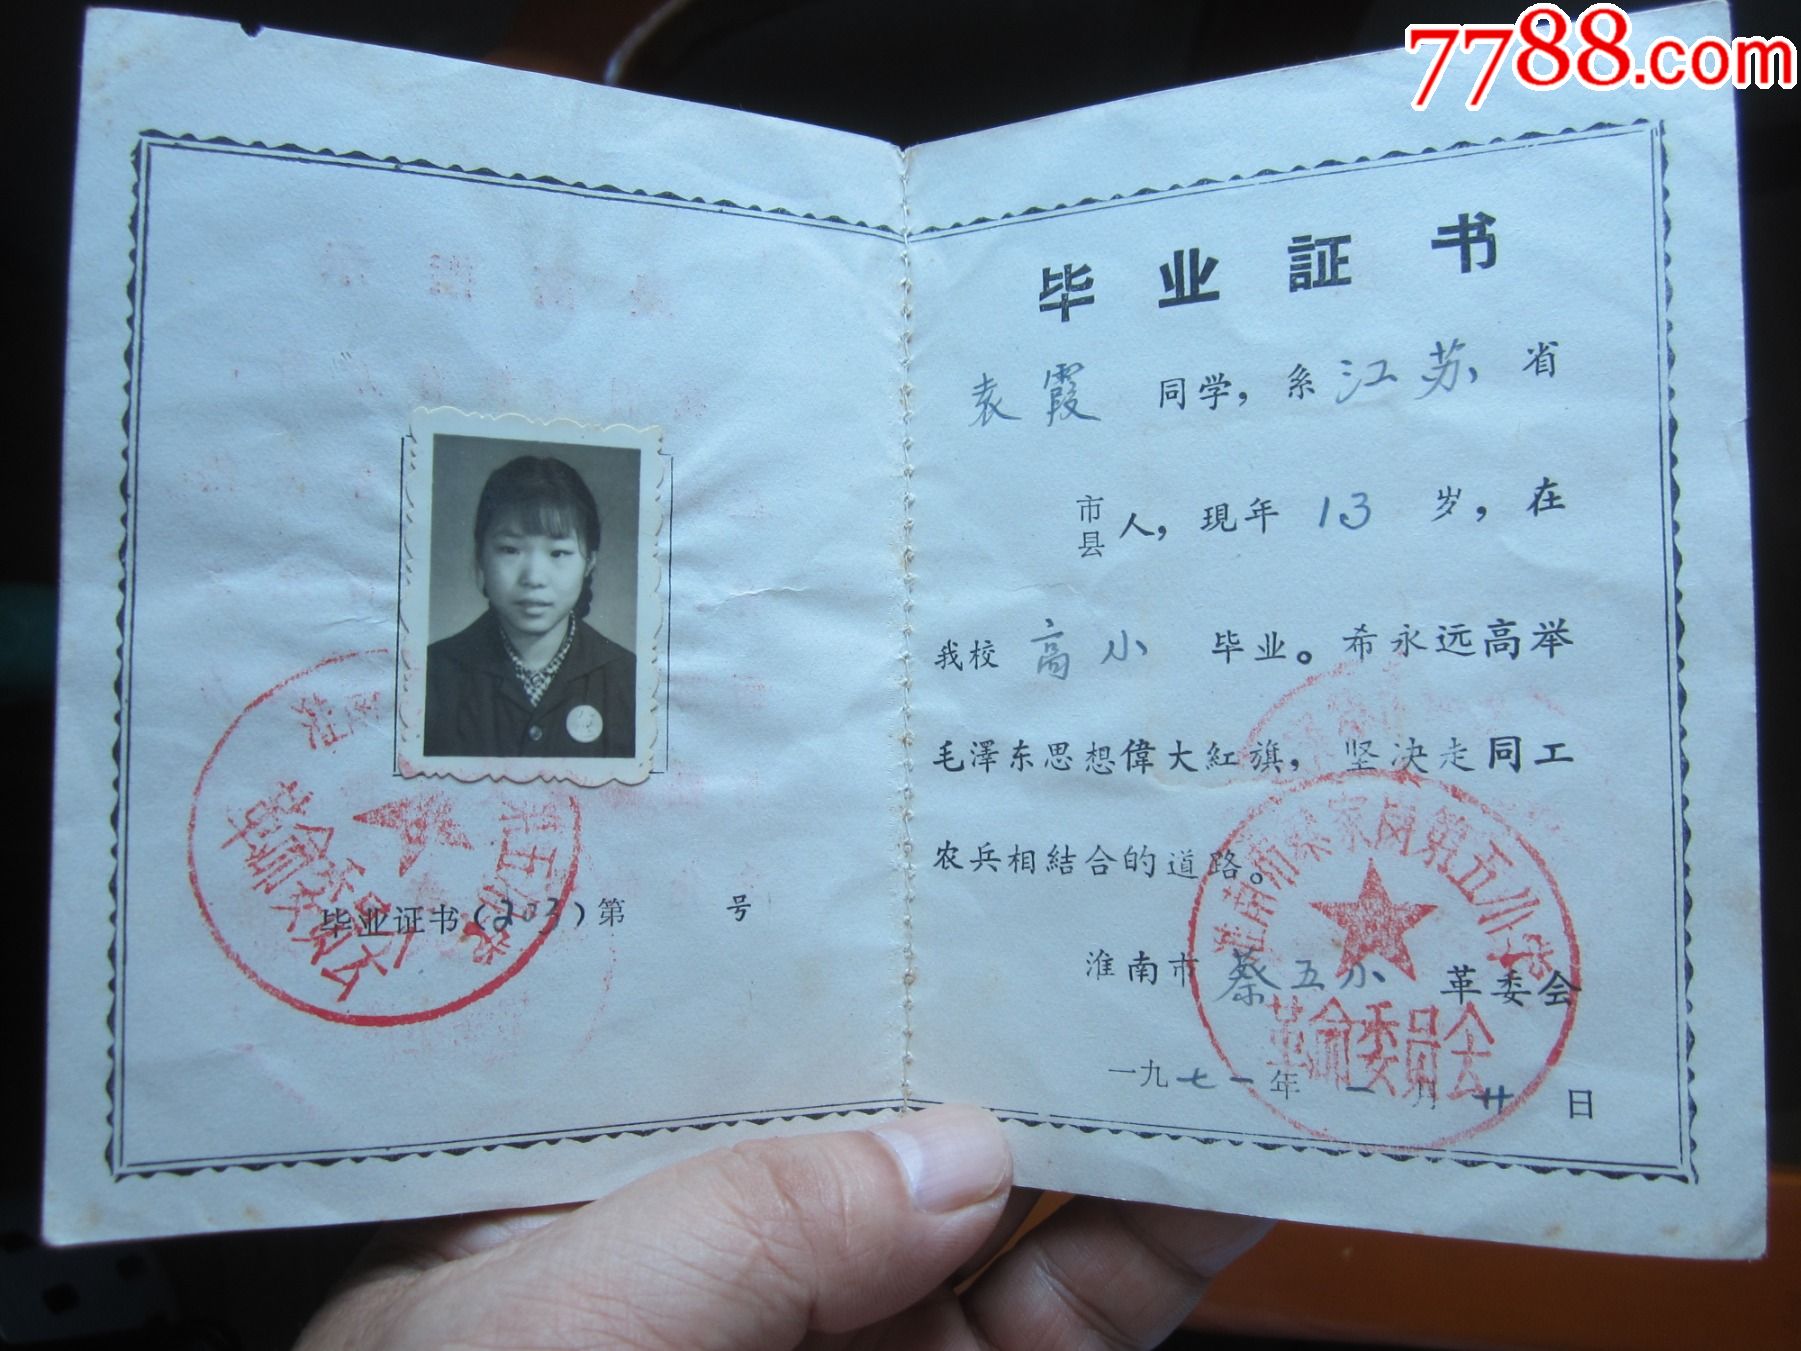 7788.com
毕业証书
袁霞 同学，系江苏省
市县人，現年 13 岁，在
我校 高小 毕业。希永远高举
毛澤东思想偉大紅旗，坚决走同工
农兵相結合的道路。
淮南市蔡五小 革委会
一九七一年一月廿日
淮南市蔡家岗第五小学
革命委員会
毕业证书(203)第 号